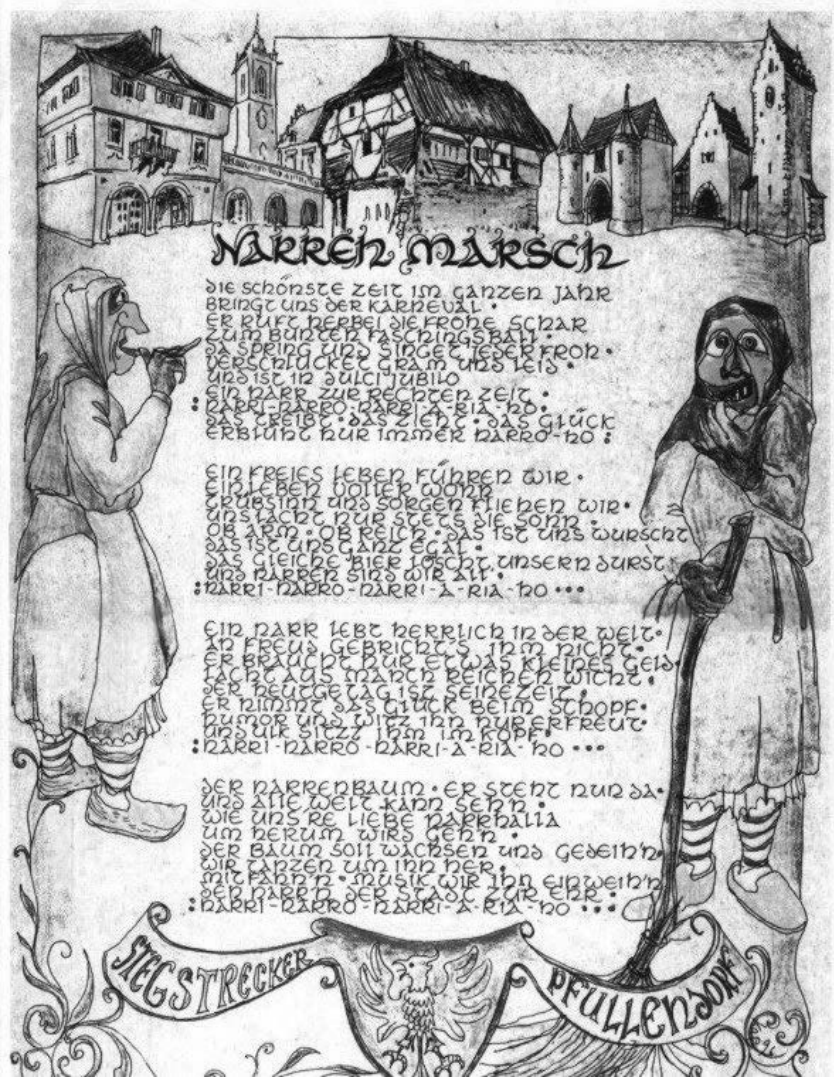 NARREN MARSCH
DIE SCHÖNSTE ZEIT IM GANZEN JAHR
BRINGT UNS DER KARNEVAL •
ER RUFT HERBEI DIE FROHE SCHAR
ZUM BUNTEN FASCHINGSBALL •
DA SPRING UND SINGET JEDER FROH •
VERSCHLUCKET GRAM UND LEID •
UND IST IN DULCI JUBILO
EIN NARR ZUR RECHTEN ZEIT •
: NARRI-NARRO-NARRI-A-RIA-HO •
DAS TREIBT • DAS ZIEHT • DAS GLÜCK
ERBLÜHT NUR IMMER NARRO-HO :
EIN FREIES LEBEN FÜHREN WIR •
EIN LEBEN VOLLER WONN
TRÜBSINN UND SORGEN FLIEHEN WIR •
UNS LACHT NUR STETS DIE SONN •
OB ARM • OB REICH • DAS IST UNS WURSCHT
DAS IST UNS GANZ EGAL •
DAS GLEICHE BIER LÖSCHT UNSERN DURST
UND NARREN SIND WIR ALL •
: NARRI-NARRO-NARRI-A-RIA-HO •••
EIN NARR LEBT HERRLICH IN DER WELT •
AN FREUD GEBRICHT'S IHM NICHT •
ER BRAUCHT NUR ETWAS KLEINES GELD •
LACHT AUS MANCH REICHEN WICHT •
DER HEUT'GE TAG IST SEINE ZEIT •
ER NIMMT DAS GLÜCK BEIM SCHOPF •
HUMOR UND WITZ IHN NUR ERFREUT •
UND ULK SITZT IHM IM KOPF •
: NARRI-NARRO-NARRI-A-RIA-HO •••
DER NARRENBAUM • ER STEHT NUN DA •
UND ALLE WELT KANN SEH'N •
WIE UNS'RE LIEBE NARRHALLA
UM HERUM WIRD GEH'N •
DER BAUM SOLL WACHSEN UND GEDEIH'N
WIR TANZEN UM IHN HER •
MIT FAHN'N • MUSIK WIR IHN EINWEIH'N
DEN NARR'N DER STADT ZUR EHR •
: NARRI-NARRO-NARRI-A-RIA-HO •••
STEGSTRECKER PFULLENDORF